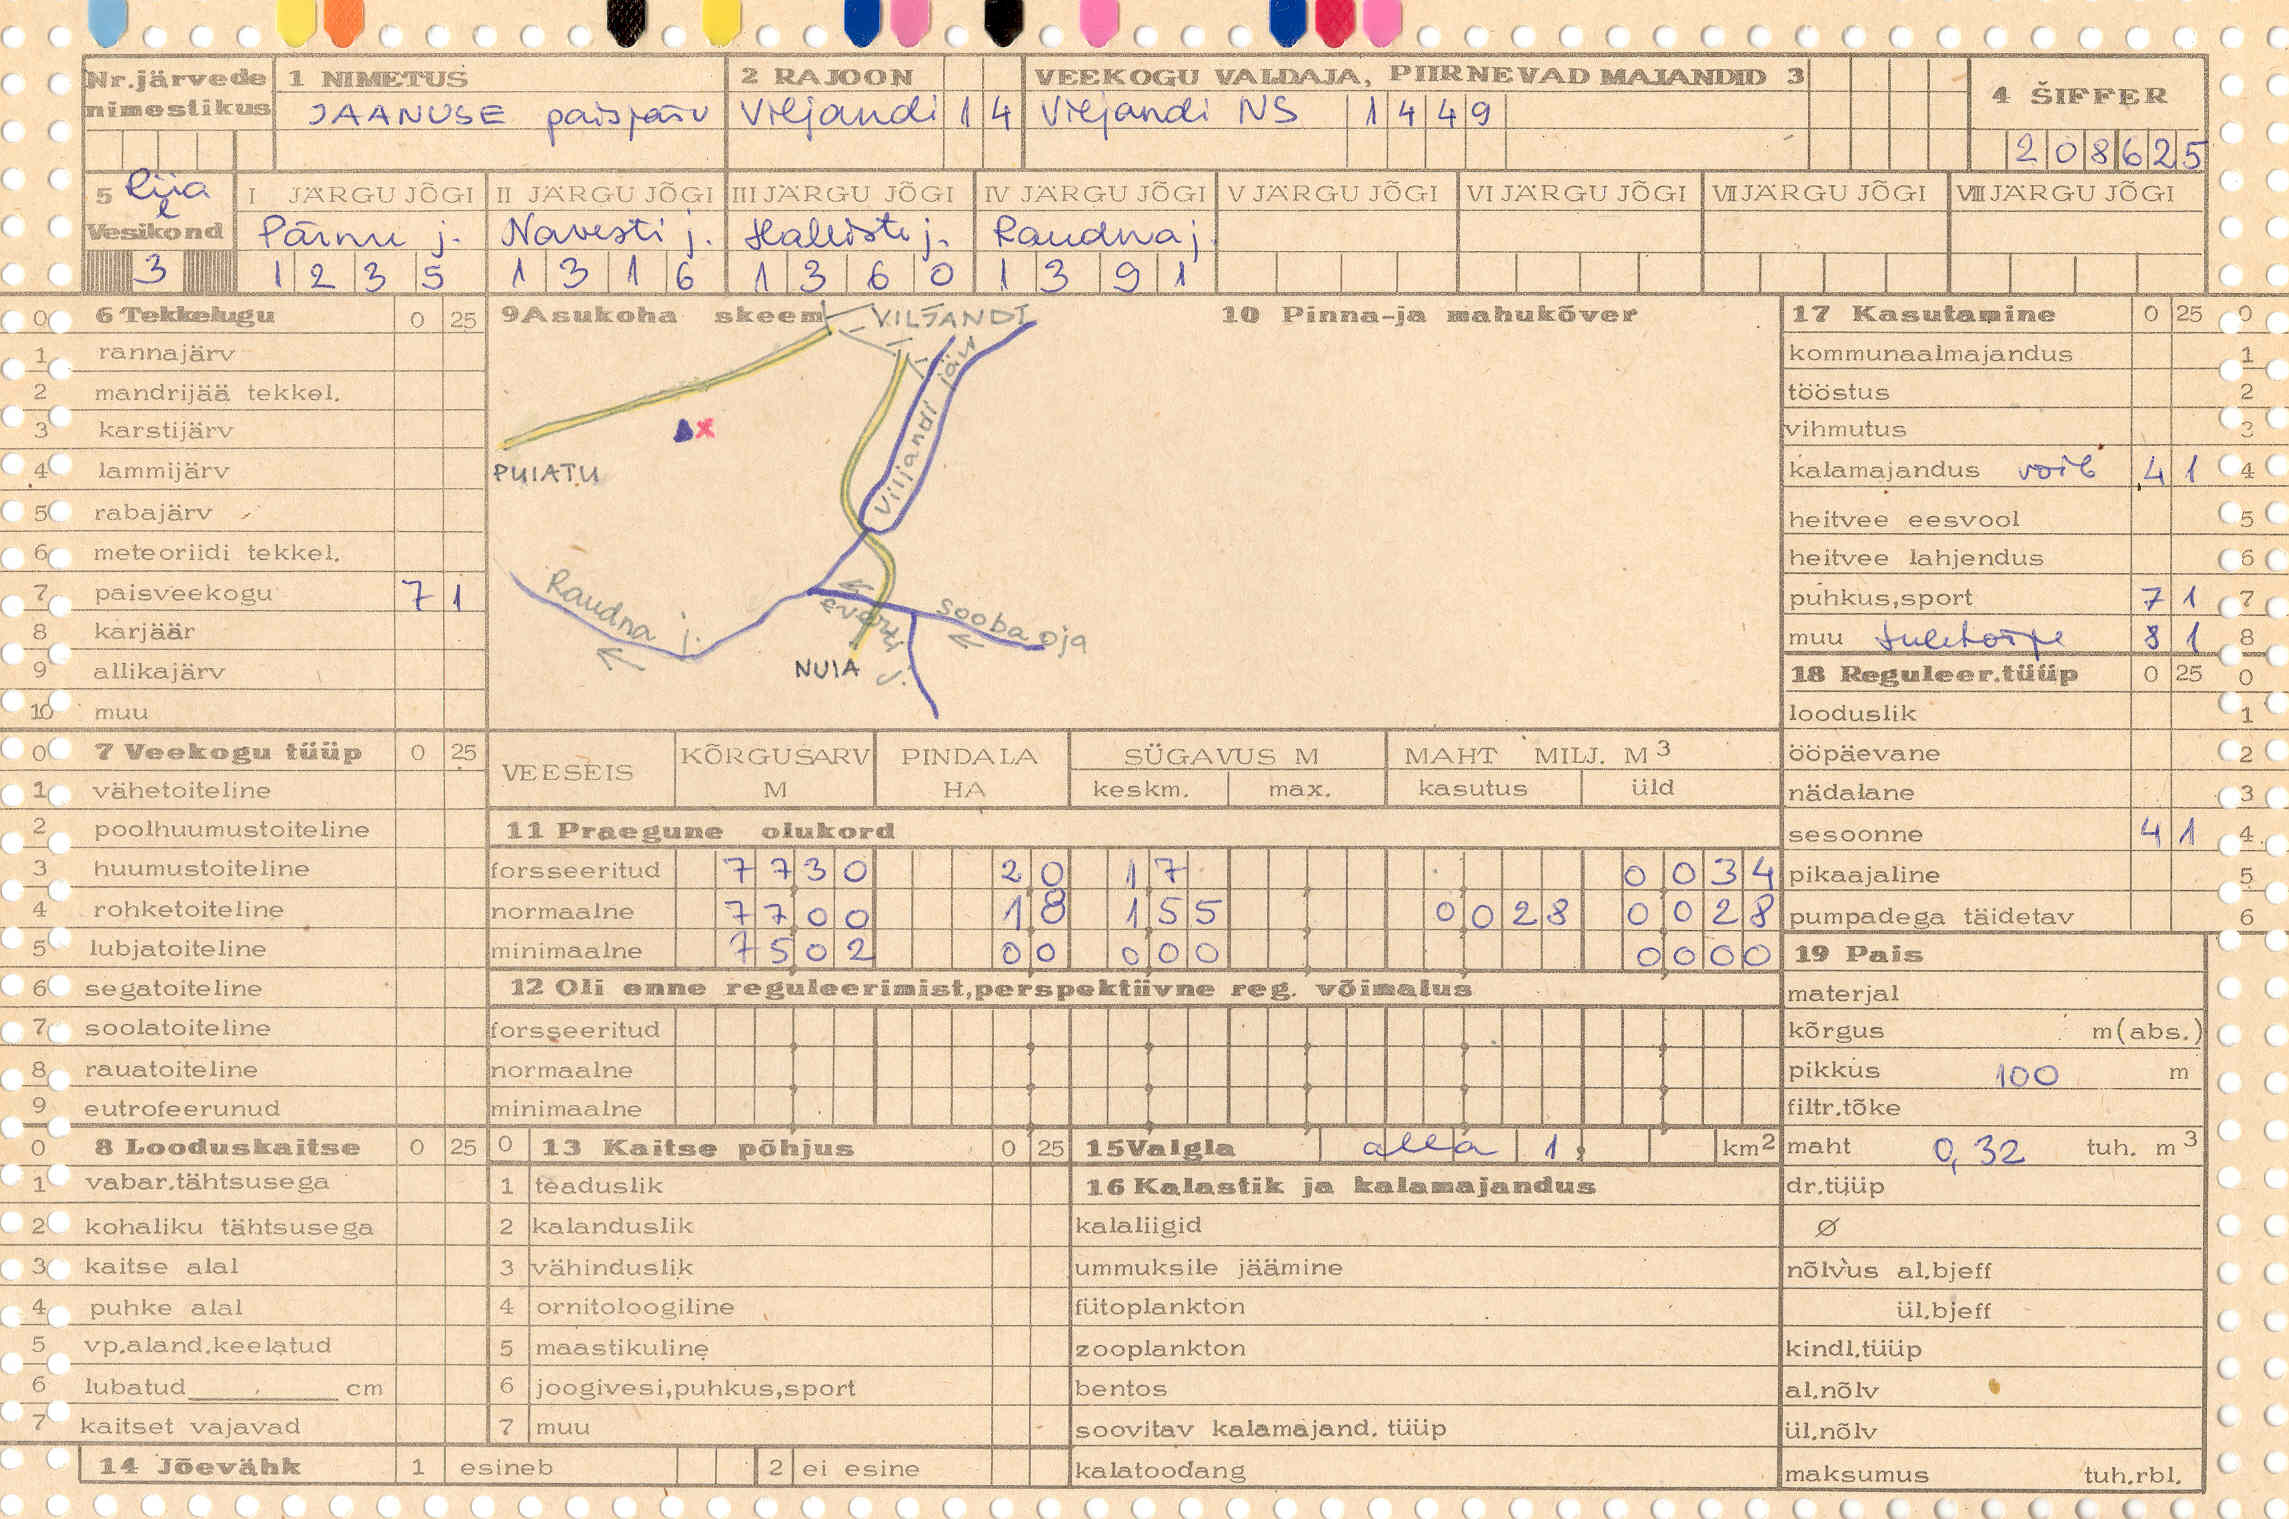 Nr.järvede nimestikus
1 NIMETUS
JAANUSE paisjärv
2 RAJOON
Viljandi 1 4
VEEKOGU VALDAJA, PIIRNEVAD MAJANDID 3
Viljandi NS 1 4 4 9
4 ŠIFFER
2 0 8 6 2 5
5 Vesikond
3
I JÄRGU JÕGI
Pärnu j.
1 2 3 5
II JÄRGU JÕGI
Navesti j.
1 3 1 6
III JÄRGU JÕGI
Halliste j.
1 3 6 0
IV JÄRGU JÕGI
Raudna j.
1 3 9 1
V JÄRGU JÕGI
VI JÄRGU JÕGI
VII JÄRGU JÕGI
VIII JÄRGU JÕGI
0 6 Tekkelugu 0 25
1 rannajärv
2 mandrijää tekkel.
3 karstijärv
4 lammijärv
5 rabajärv
6 meteoriidi tekkel.
7 paisveekogu 7 1
8 karjäär
9 allikajärv
10 muu
0 7 Veekogu tüüp 0 25
1 vähetoiteline
2 poolhuumustoiteline
3 huumustoiteline
4 rohketoiteline
5 lubjatoiteline
6 segatoiteline
7 soolatoiteline
8 rauatoiteline
9 eutrofeerunud
0 8 Looduskaitse 0 25
1 vabar.tähtsusega
2 kohaliku tähtsusega
3 kaitse alal
4 puhke alal
5 vp.aland.keelatud
6 lubatud cm
7 kaitset vajavad
14 Jõevähk 1 esineb 2 ei esine
9 Asukoha skeem
VILJANDI
Viljandi järv
PUIATU
Raudna j.
sooba oja
NUIA
10 Pinna-ja mahukõver
VEESEIS
KÕRGUSARV M
PINDALA HA
SÜGAVUS M
keskm. max.
MAHT MILJ. M3
kasutus üld
11 Praegune olukord
forsseeritud 7 7 3 0 2 0 1 7 0 0 3 4
normaalne 7 7 0 0 1 8 1 5 5 0 0 2 8 0 0 2 8
minimaalne 7 5 0 2 0 0 0 0 0 0 0 0 0
12 Oli enne reguleerimist,perspektiivne reg. võimalus
forsseeritud
normaalne
minimaalne
0 13 Kaitse põhjus 0 25
1 teaduslik
2 kalanduslik
3 vähinduslik
4 ornitoloogiline
5 maastikuline
6 joogivesi,puhkus,sport
7 muu
15 Valgla alla 1, km2
16 Kalastik ja kalamajandus
kalaliigid
ummuksile jäämine
fütoplankton
zooplankton
bentos
soovitav kalamajand. tüüp
kalatoodang
17 Kasutamine 0 25 0
kommunaalmajandus 1
tööstus 2
vihmutus 3
kalamajandus võib 4 1 4
heitvee eesvool 5
heitvee lahjendus 6
puhkus,sport 7 1 7
muu tuletõrje 8 1 8
18 Reguleer.tüüp 0 25 0
looduslik 1
ööpäevane 2
nädalane 3
sesoonne 4 1 4
pikaajaline 5
pumpadega täidetav 6
19 Pais
materjal
kõrgus m(abs.)
pikkus 100 m
filtr.tõke
maht 0,32 tuh. m3
dr.tüüp
Ø
nõlvus al.bjeff
ül.bjeff
kindl.tüüp
al.nõlv
ül.nõlv
maksumus tuh.rbl.